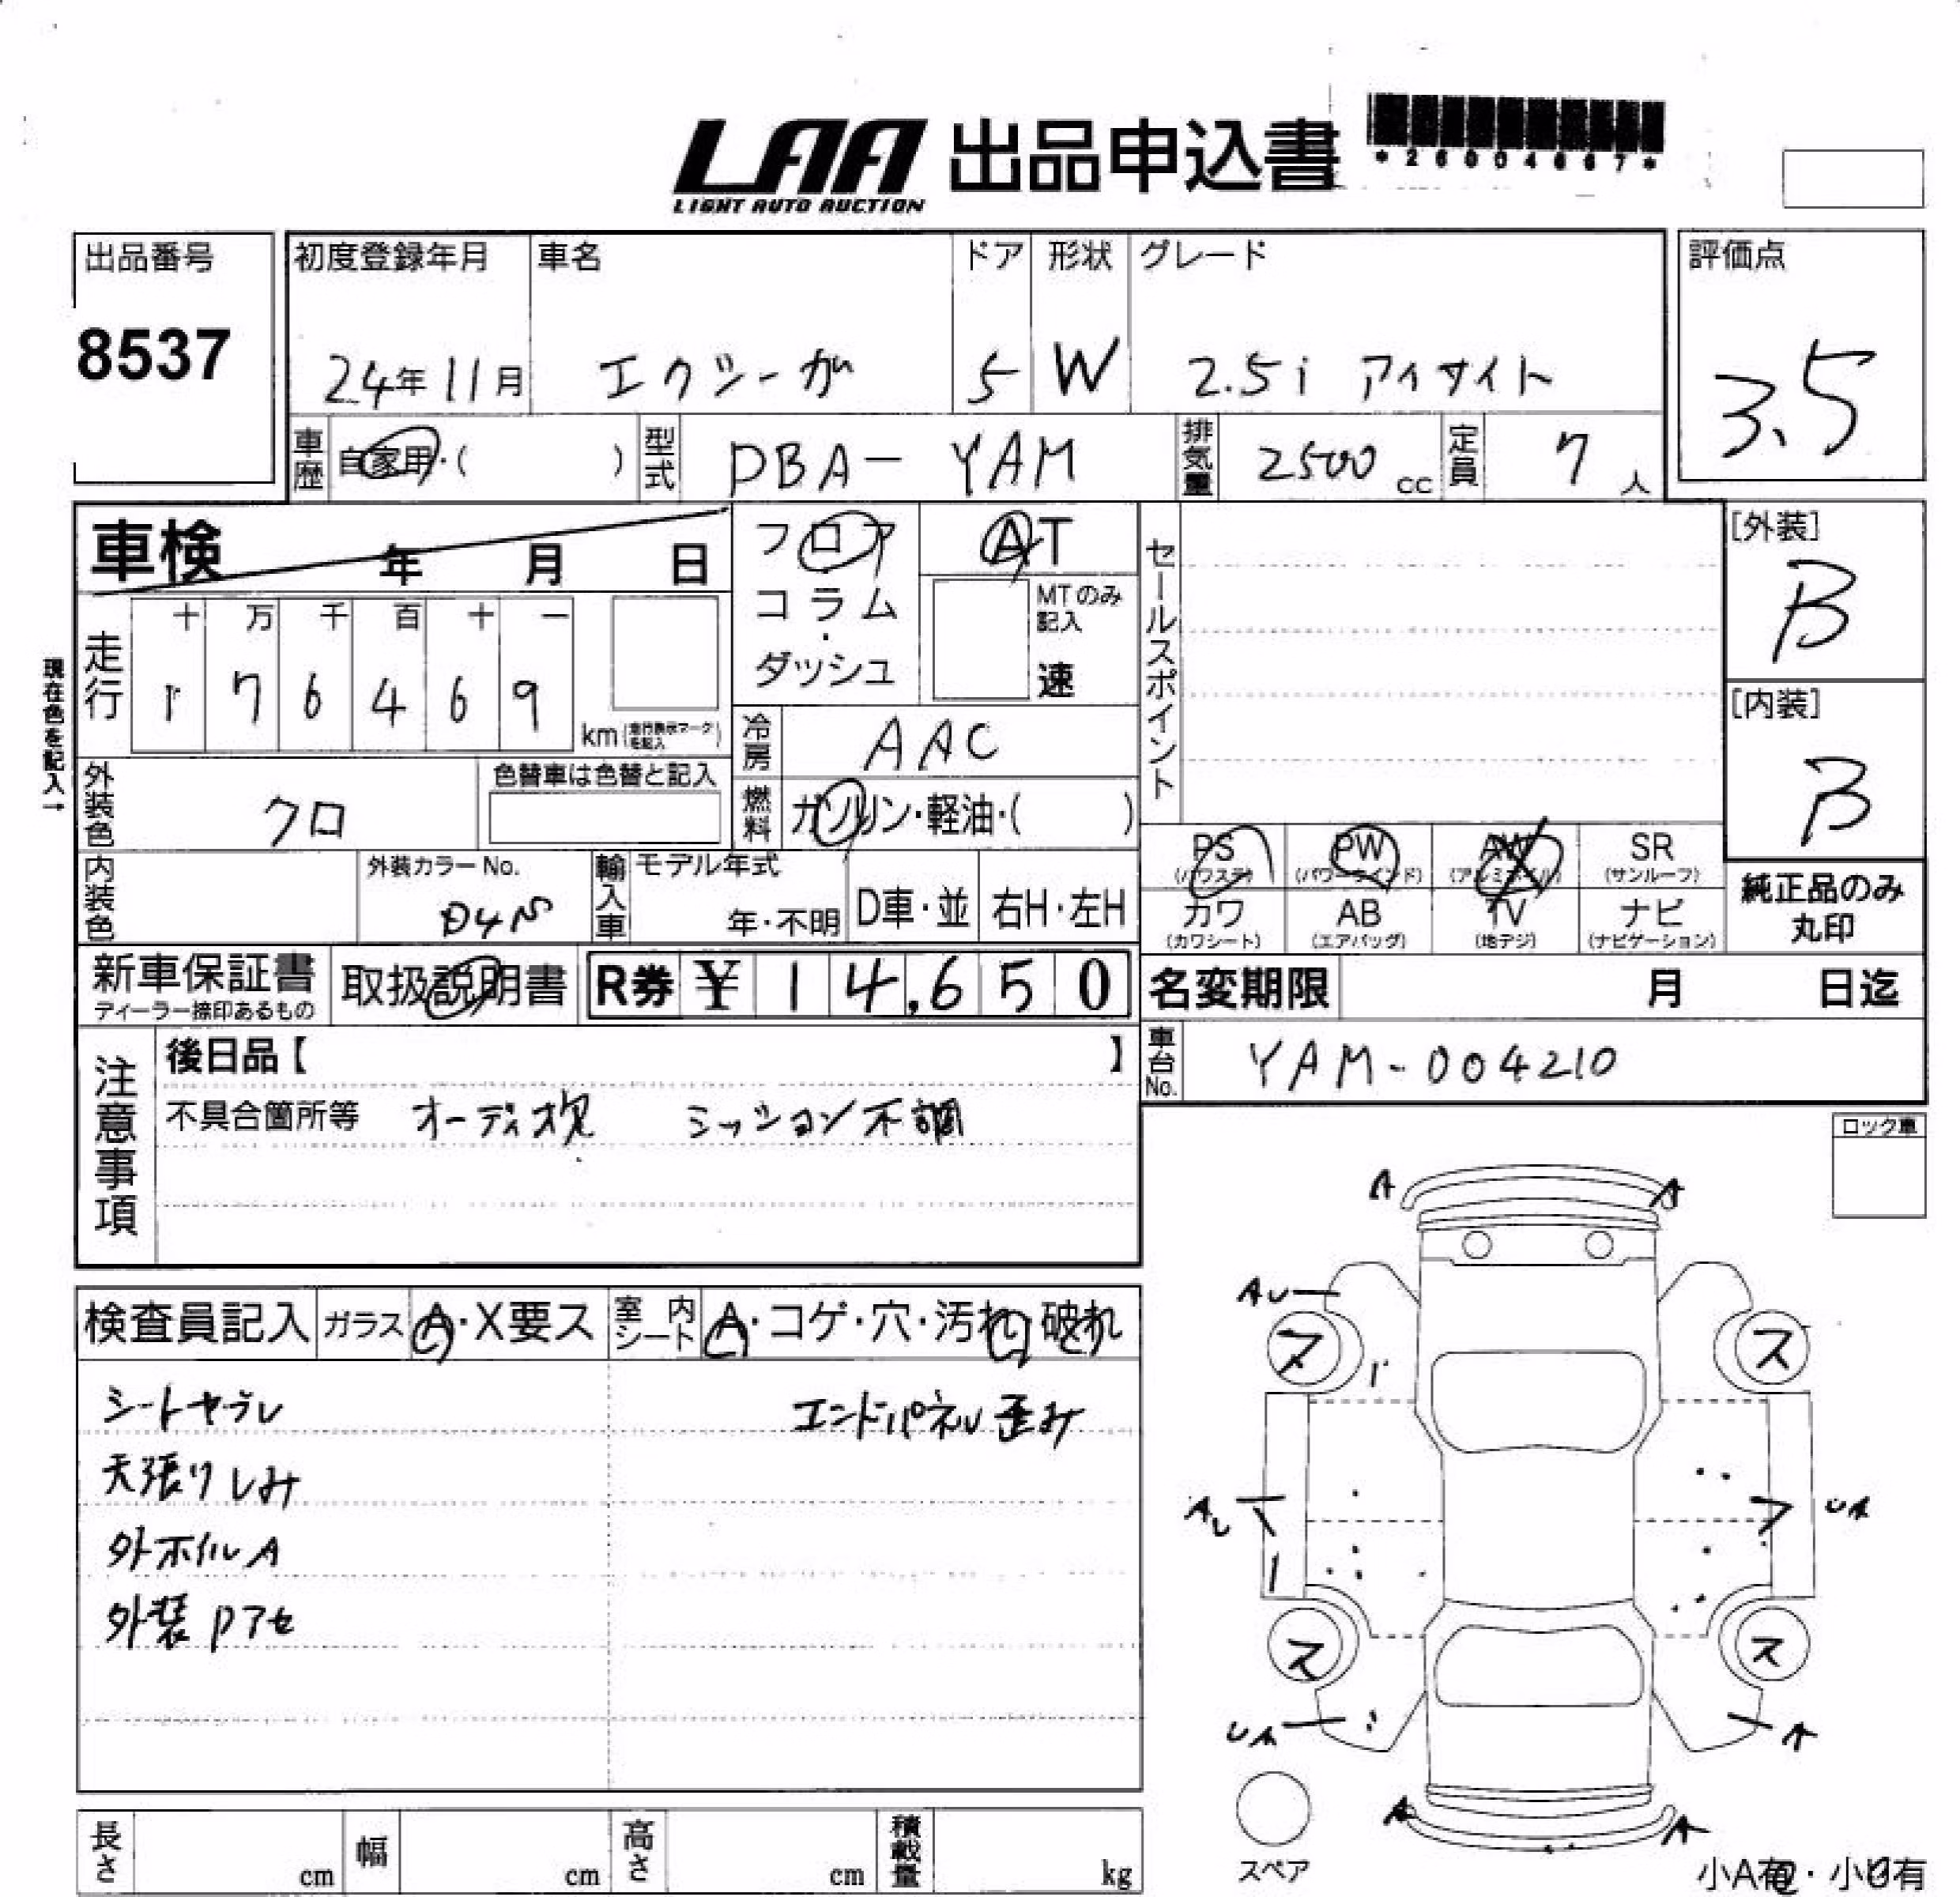 LAA 出品申込書
LIGHT AUTO AUCTION
*26004667*
出品番号 初度登録年月 車名 ドア 形状 グレード 評価点
8537 24年11月 エクシーガ 5 W 2.5i アイサイト 3.5
車歴 自家用・( ) 型式 DBA-YAM 排気量 2500cc 定員 7人
車検 年 月 日
フロア・コラム・ダッシュ
AT
MTのみ記入
速
セールスポイント
[外装]
B
[内装]
B
現在色を記入→
走行 十 万 千 百 十 一
1 7 6 4 6 9 km(走行表示マークを記入)
冷房 AAC
燃料 ガソリン・軽油・( )
外装色 クロ 色替車は色替と記入
内装色 外装カラーNo. D4S
輸入車 モデル年式 年・不明 D車・並 右H・左H
PS (パワステ) PW (パワーウインド) AW (アルミホイル) SR (サンルーフ)
カワ (カワシート) AB (エアバッグ) TV (地デジ) ナビ (ナビゲーション)
純正品のみ
丸印
新車保証書
ディーラー捺印あるもの
取扱説明書 R券 ¥14,650
名変期限 月 日迄
車台No. YAM-004210
注意事項
後日品【 】
不具合箇所等 オーディオ欠 ミッション不調
ロック車
検査員記入 ガラス A・X要ス 室内シート A・コゲ・穴・汚れ・破れ
シートヤブレ エンドパネル歪み
天張りしみ
外ホイルA
外装Pアセ
A A
AU
ス ス
AU UA
ス ス
UA A
A A
スペア
小A有・小U有
長さ cm 幅 cm 高さ cm 積載量 kg